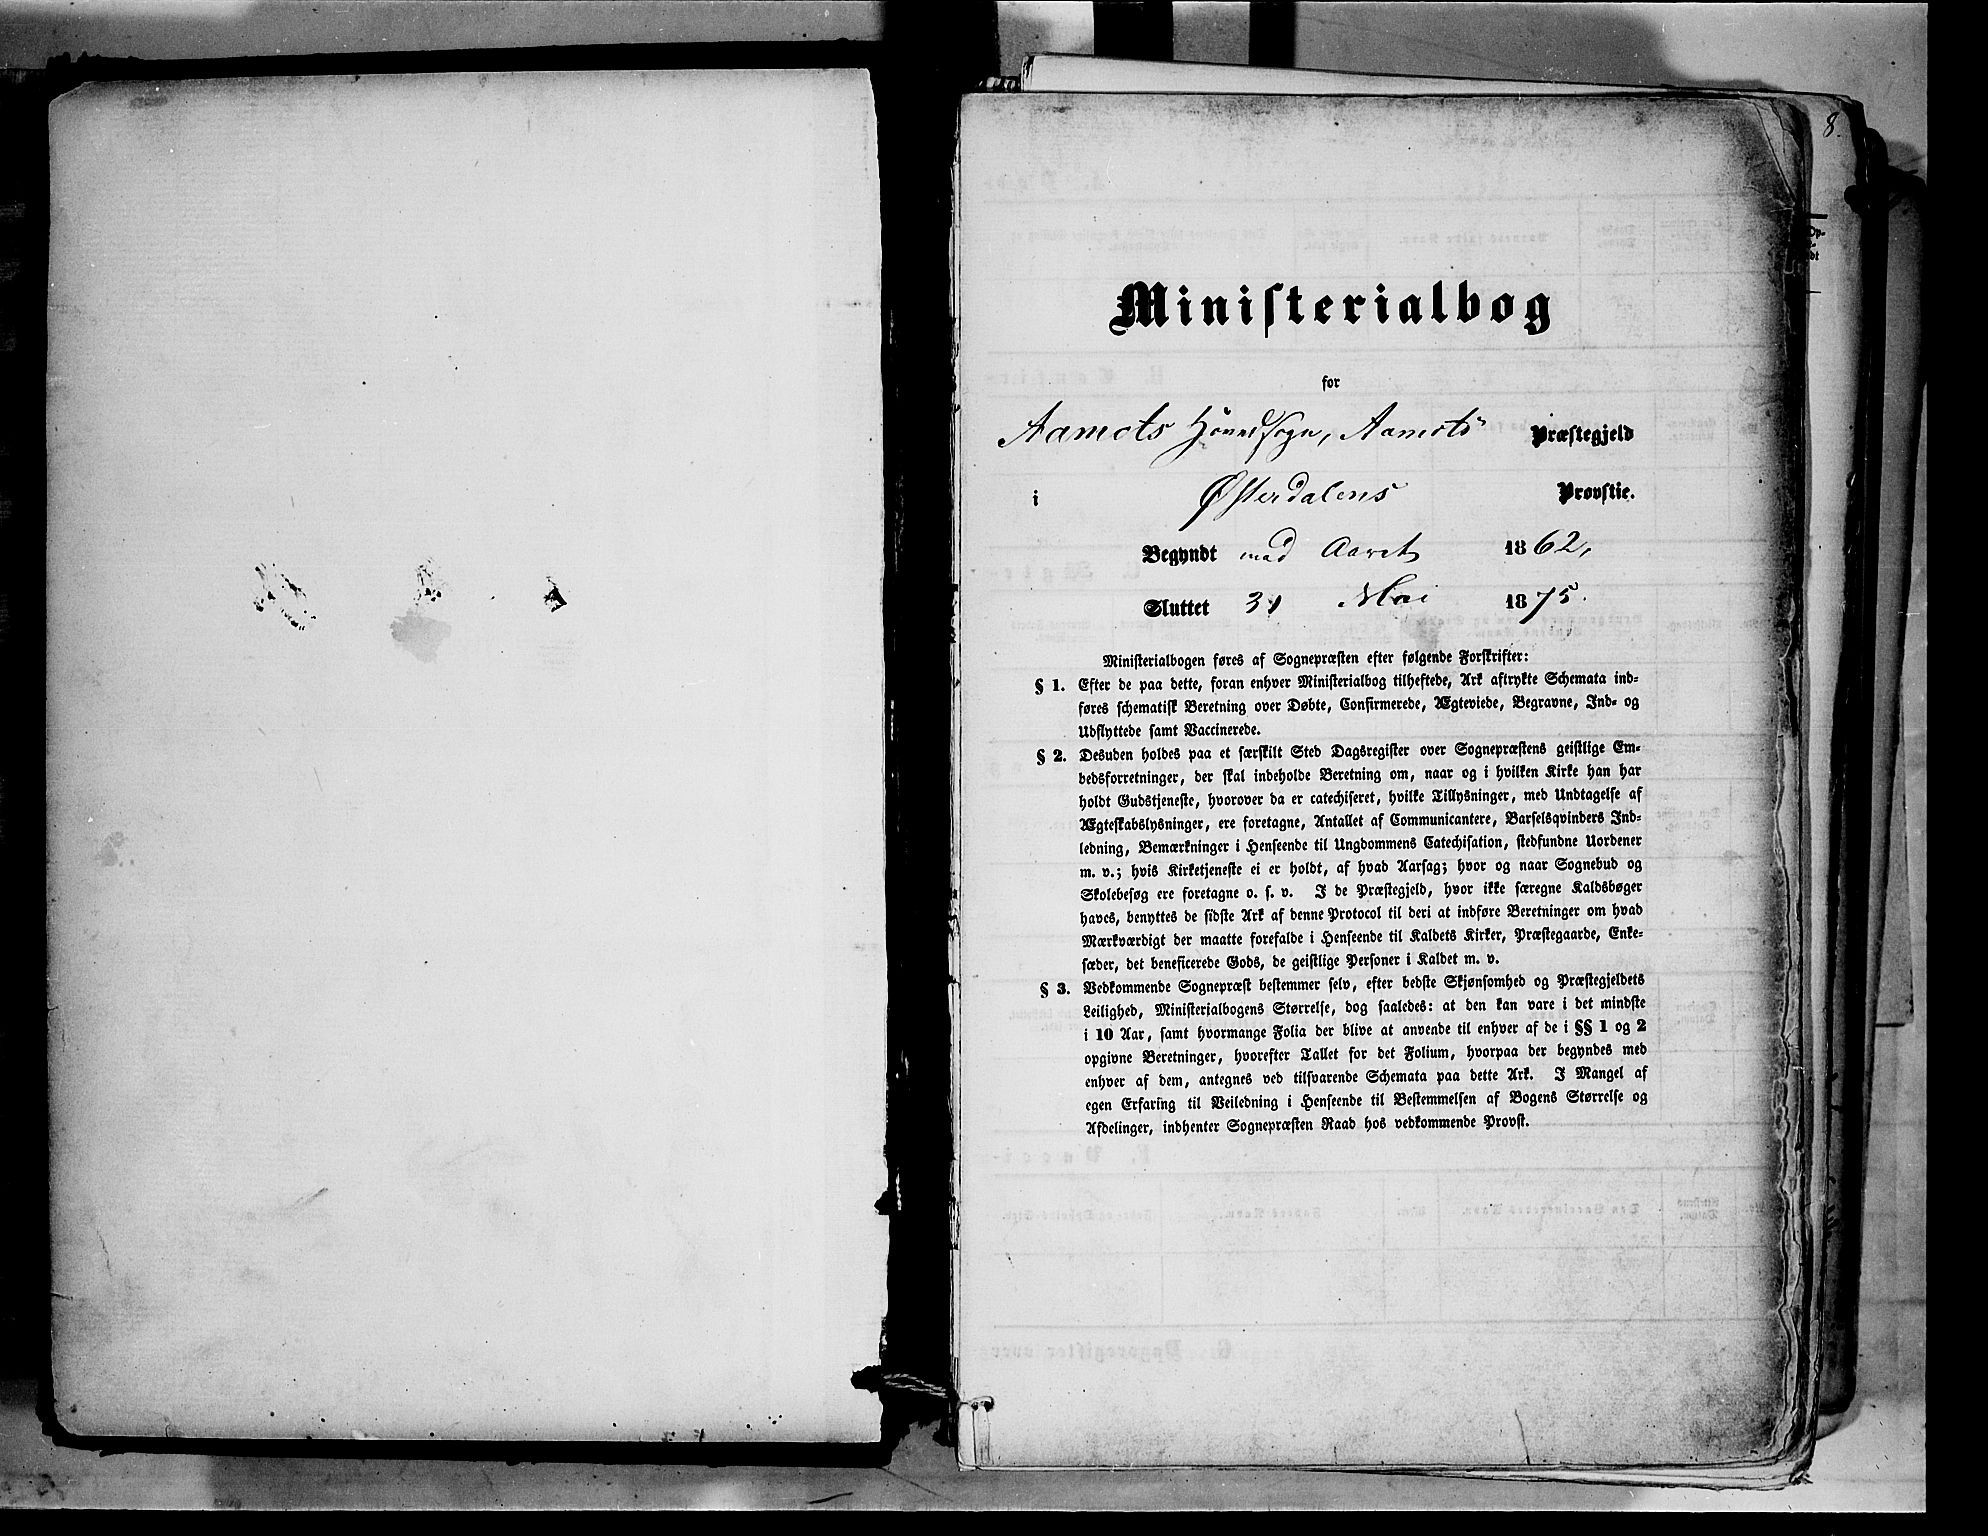 8.
Ministerialbog
for
Aamots Hovedsogn, Aamots Præstegjeld
i Østerdalens Provstie.
Begyndt med Aaret 1862,
Sluttet 31 Mai 1875.
Ministerialbogen føres af Sognepræsten efter følgende Forskrifter:
§ 1. Efter de paa dette, foran enhver Ministerialbog tilheftede, Ark aftrykte Schemata ind-
føres schematisk Beretning over Døbte, Confirmerede, Ægteviede, Begravne, Ind- og
Udflyttede samt Vaccinerede.
§ 2. Desuden holdes paa et særskilt Sted Dagsregister over Sognepræstens geistlige Em-
bedsforretninger, der skal indeholde Beretning om, naar og i hvilken Kirke han har
holdt Gudstjeneste, hvorover da er catechiseret, hvilke Tillysninger, med Undtagelse af
Ægteskabslysninger, ere foretagne, Antallet af Communicantere, Barselqvinders Ind-
ledning, Bemærkninger i Henseende til Ungdommens Catechisation, stedfundne Uordener
m. v.; hvis Kirketjeneste ei er holdt, af hvad Aarsag; hvor og naar Sognebud og
Skolebesøg ere foretagne o. s. v. I de Præstegjeld, hvor ikke særegne Kaldsbøger
haves, benyttes de sidste Ark af denne Protocol til deri at indføre Beretninger om hvad
Mærkværdigt der maatte forefalde i Henseende til Kaldets Kirker, Præstegaarde, Enke-
sæder, det beneficerede Gods, de geistlige Personer i Kaldet m. v.
§ 3. Vedkommende Sognepræst bestemmer selv, efter bedste Skjønsomhed og Præstegjeldets
Leilighed, Ministerialbogens Størrelse, dog saaledes: at den kan vare i det mindste
i 10 Aar, samt hvormange Folia der blive at anvende til enhver af de i §§ 1 og 2
opgivne Beretninger, hvorefter Tallet for det Folium, hvorpaa der begyndes med
enhver af dem, antegnes ved tilsvarende Schemata paa dette Ark. I Mangel af
egen Erfaring til Veiledning i Henseende til Bestemmelsen af Bogens Størrelse og
Afdelinger, indhenter Sognepræsten Raad hos vedkommende Provst.